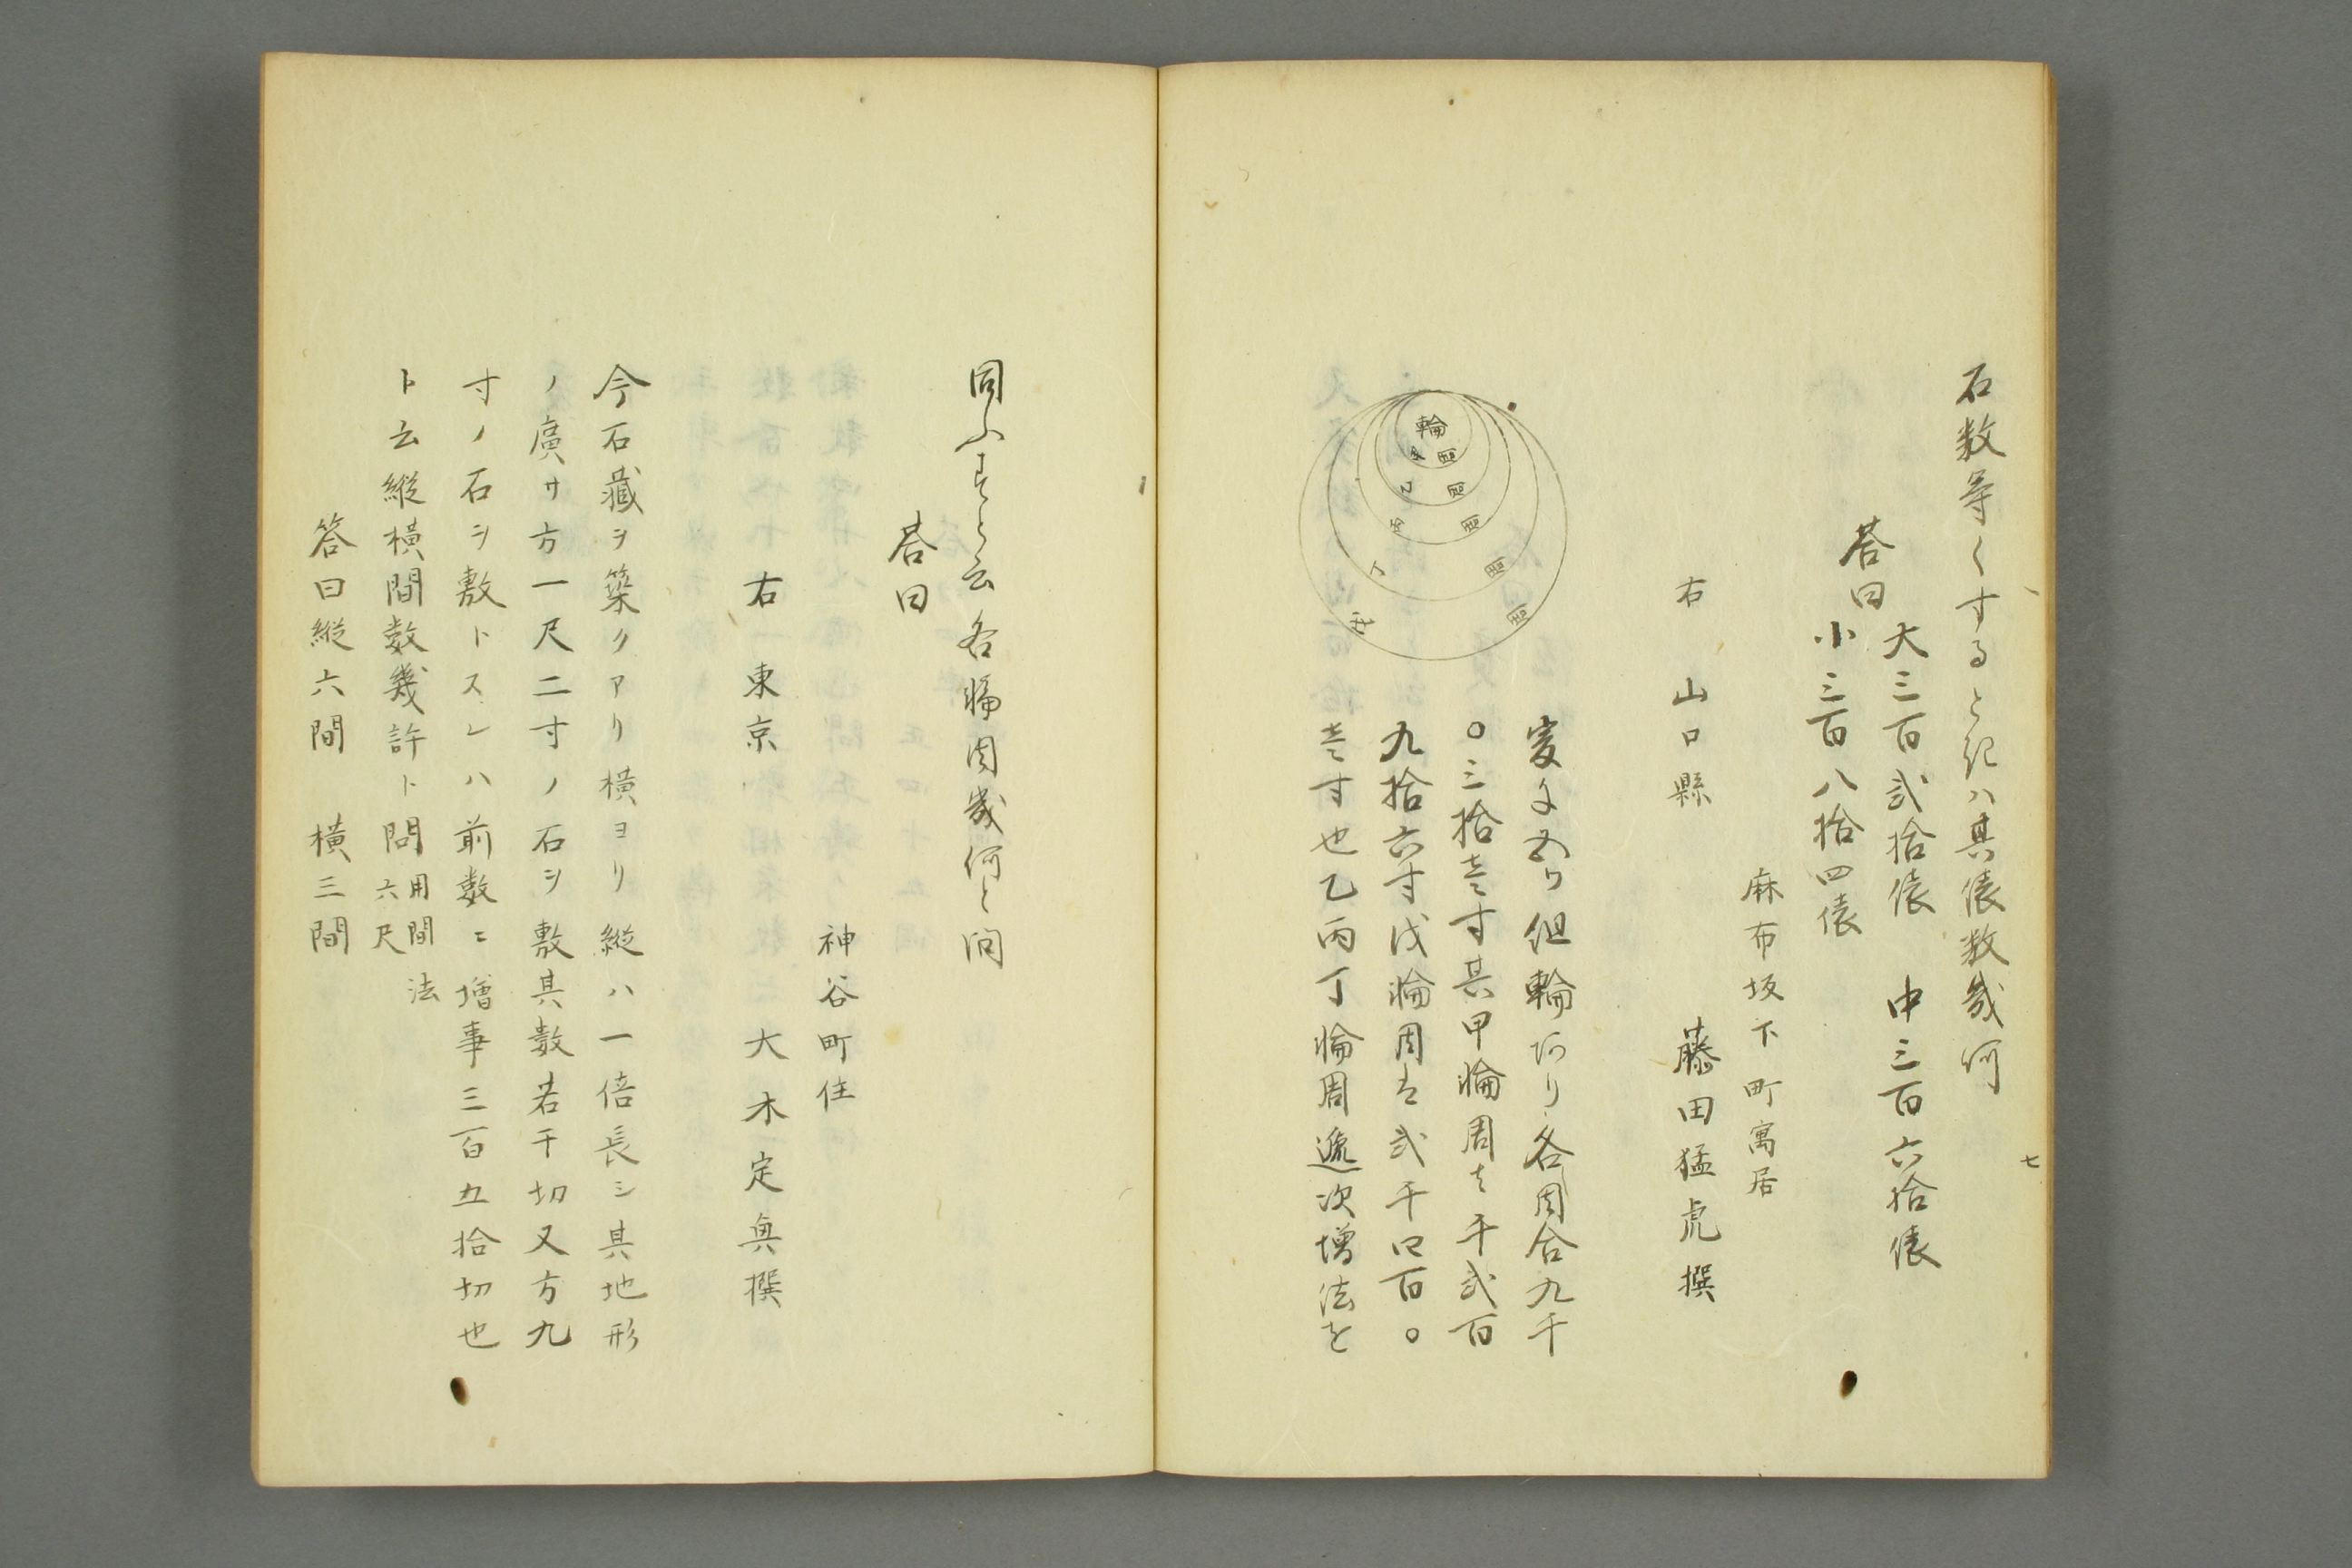 石数等くすると紀ハ其俵数幾何
答曰
大三百弐拾俵　中三百六拾俵
小三百八拾四俵
麻布坂下町寓居
右　山口縣　藤田猛虎撰
輪
甲　周
乙　周
丙　周
丁　周
戊　周
爰ニ五ツ組輪アリ各周合九千
〇三拾壱寸其甲輪周ハ千弐百
九拾六寸戊輪周ハ弐千四百〇
壱寸也乙丙丁輪周逓次増法を
七
同ふすと云各輪周幾何と問
答曰
神谷町住
右　東京　大木定興撰
今石藏ヲ築クアリ横ヨリ縦ハ一倍長シ其地形
ノ廣サ方一尺二寸ノ石ヲ敷其数若干切又方九
寸ノ石ヲ敷トスレハ前数ニ増事三百五拾切也
ト云縦横間数幾許ト問　用間法六尺
答曰縦六間　横三間